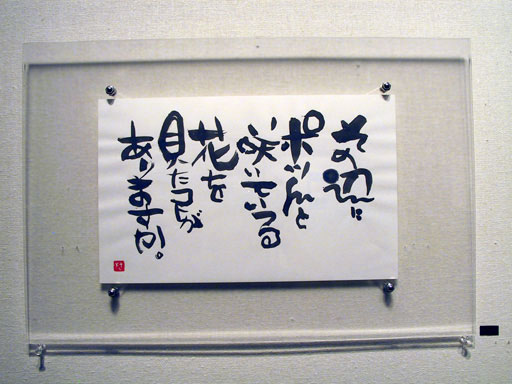 その辺に
ポツんと
咲いている
花を
見たことが
ありますか。